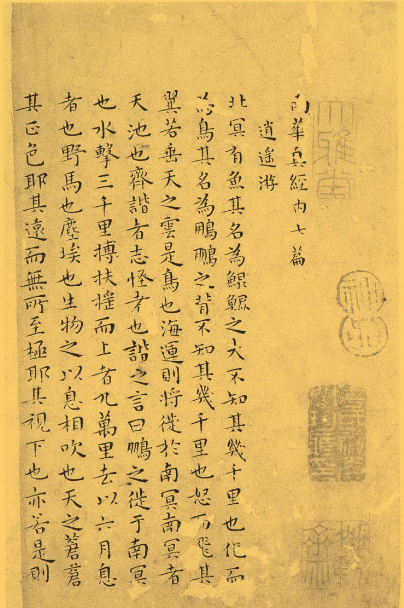 神品
南華真經內七篇
逍遙游
北冥有魚其名為鯤鯤之大不知其幾千里也化而
為鳥其名為鵬鵬之背不知其幾千里也怒而飛其
翼若垂天之雲是鳥也海運則將徙於南冥南冥者
天池也齊諧者志怪者也諧之言曰鵬之徙于南冥
也水擊三千里搏扶搖而上者九萬里去以六月息
者也野馬也塵埃也生物之以息相吹也天之蒼蒼
其正色耶其遠而無所至極耶其視下也亦若是則